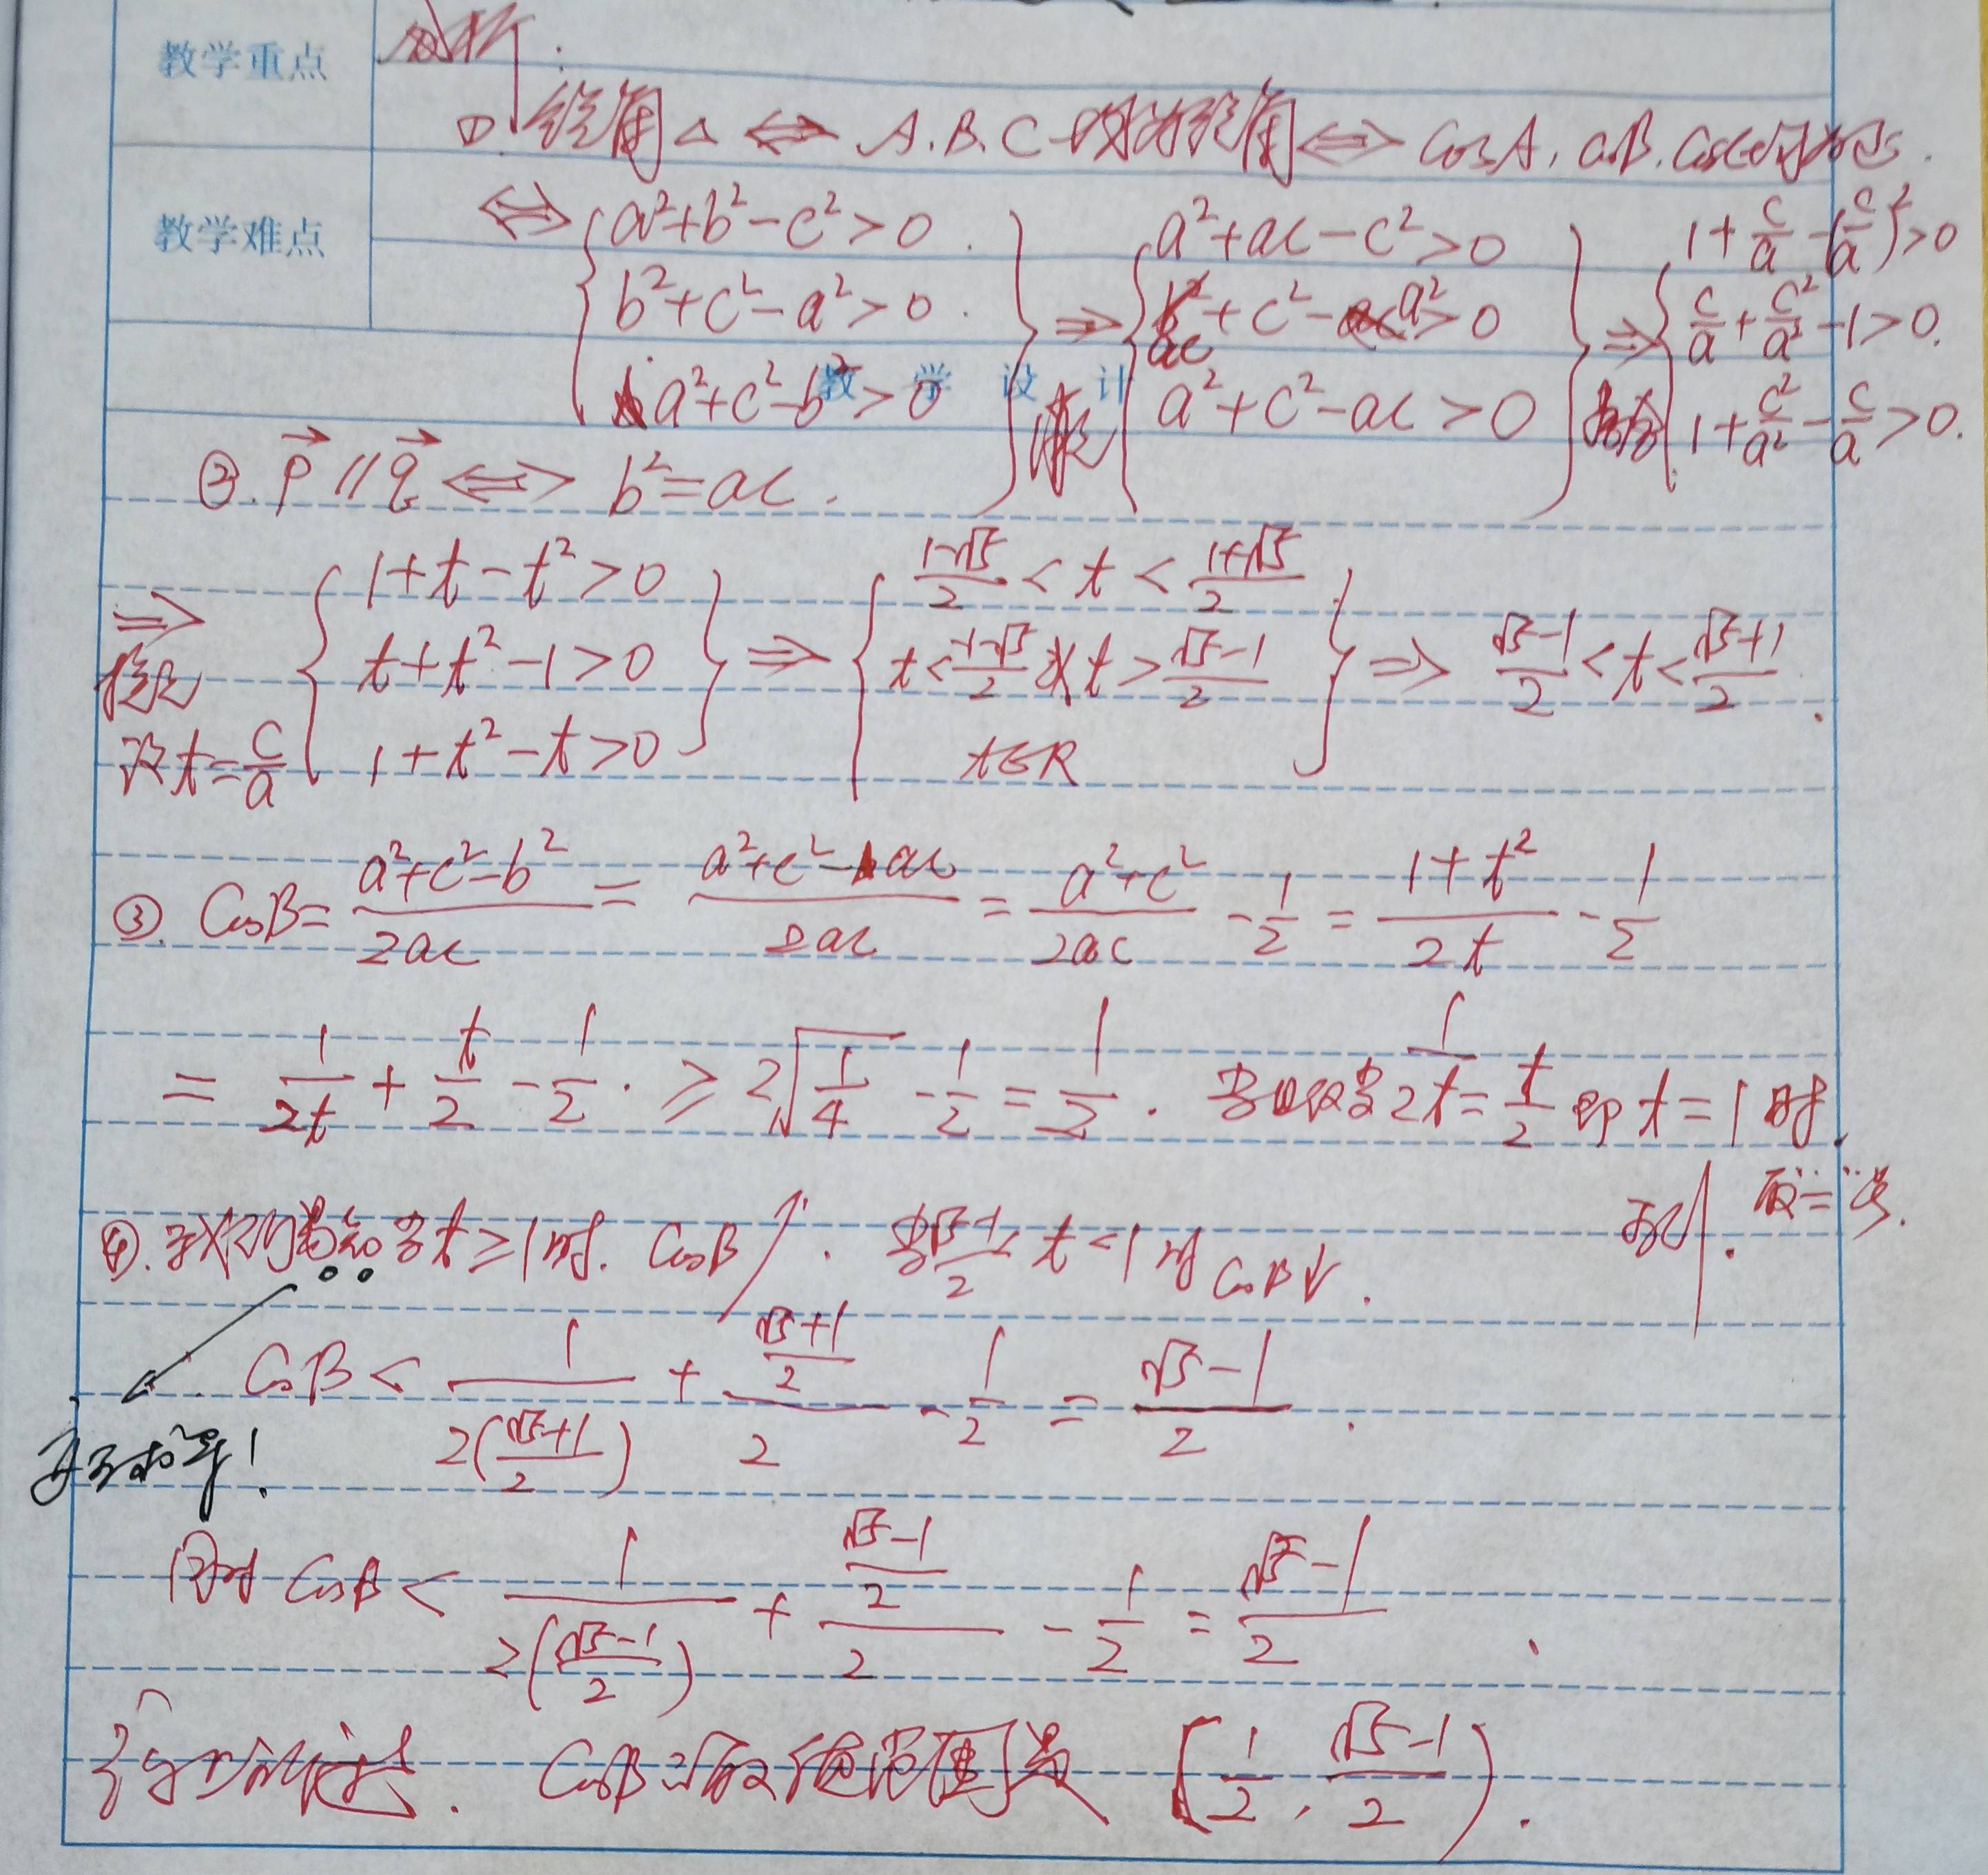 教学重点
分析：
①. 锐角△ ⟺ A.B.C 均为锐角 ⟺ CosA, cosB, CosC均为正.
教学难点
⟺ { a²+b²-c²>0. b²+c²-a²>0. a²+c²-b²>0 } ⇒ { a²+ac-c²>0 ac+c²-a²>0 a²+c²-ac>0 } ⇒ { 1+c/a-(c/a)²>0 c/a+c²/a²-1>0. 1+c²/a²-c/a>0.
教 学 设 计
②. p⃗ // q⃗ ⟺ b²=ac.
⇒ 设 t=c/a { 1+t-t²>0 t+t²-1>0 1+t²-t>0 } ⇒ { (1-√5)/2 < t < (1+√5)/2 t<(-1-√5)/2 或 t>(√5-1)/2 t∈R } ⇒ (√5-1)/2 < t < (√5+1)/2.
③. CosB = (a²+c²-b²)/2ac = (a²+c²-ac)/2ac = (a²+c²)/2ac - 1/2 = (1+t²)/2t - 1/2
= 1/2t + t/2 - 1/2. ≥ 2√(1/4) - 1/2 = 1/2. 当且仅当 1/2t = t/2 即 t=1 时
取"="号.
④. 当 t≥1 时. CosB↗. 当 (√5-1)/2 < t <1 时 CosB↓.
CosB < 1/(2((√5+1)/2)) + ((√5+1)/2)/2 - 1/2 = (√5-1)/2.
求导!
同时 CosB < 1/(2((√5-1)/2)) + ((√5-1)/2)/2 - 1/2 = (√5-1)/2.
CosB 取值范围为 [1/2, (√5-1)/2).